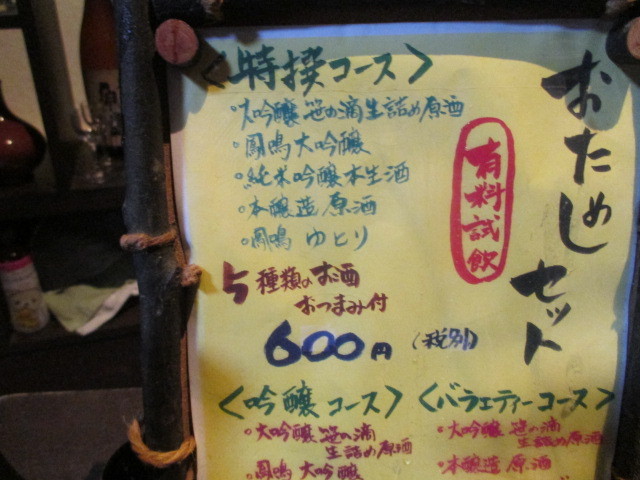 おためしセット
有料試飲
〈特撰コース〉
・大吟醸 笹の滴生詰め原酒
・鳳鳴大吟醸
・純米吟醸本生酒
・本醸造原酒
・鳳鳴 ゆとり
5種類のお酒
おつまみ付
600円 (税別)
〈吟醸コース〉
・大吟醸 笹の滴
生詰め原酒
・鳳鳴 大吟醸
〈バラエティーコース〉
・大吟醸 笹の滴
生詰め原酒
・本醸造 原酒